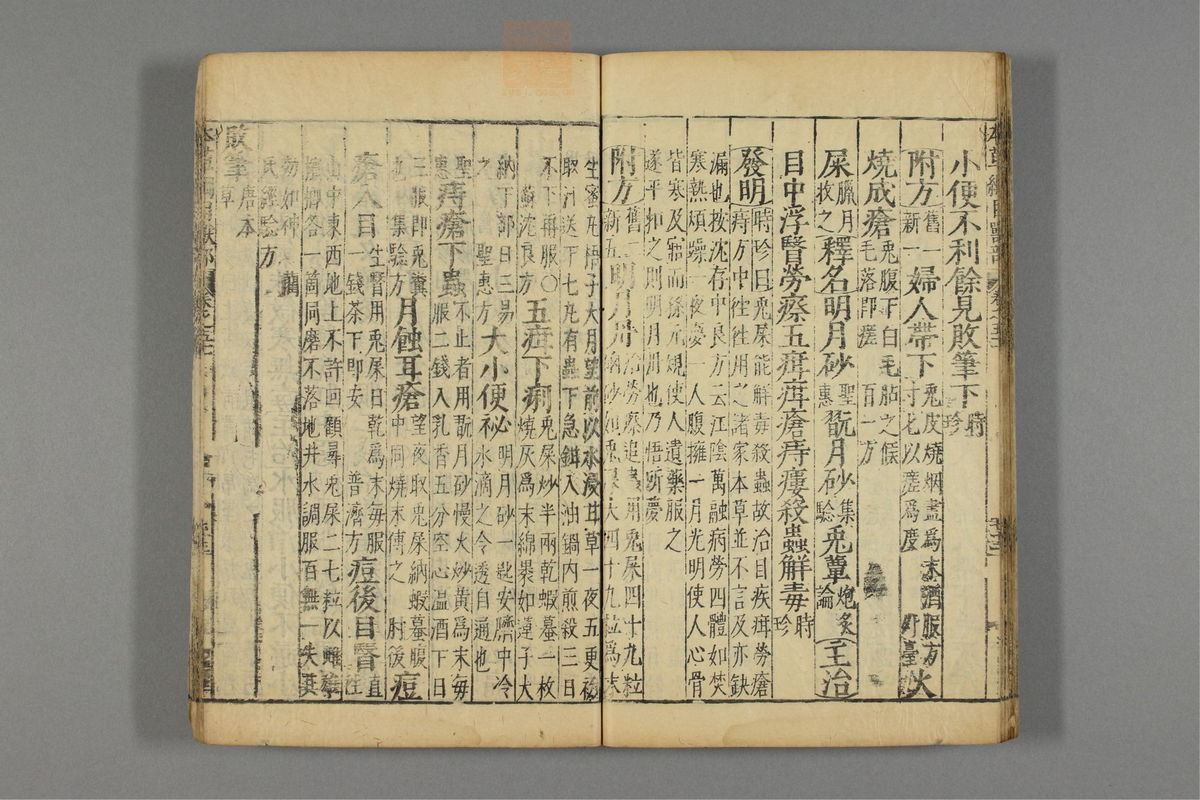 小便不利餘見敗筆下時珍
附方舊一新一婦人帶下兔皮燒烟盡爲末酒服方寸匕以瘥爲度外臺火
燒成瘡兔腹下白毛貼之候毛落即瘥百一方
屎臘月收之釋名明月砂聖惠翫月砂集驗兔蕈炮炙論主治
目中浮瞖勞瘵五疳疳瘡痔瘻殺蟲解毒時珍
發明時珍曰兔屎能解毒殺蟲故治目疾疳勞瘡
痔方中徃徃用之諸家本草並不言及亦缺
漏也按沈存中良方云江陰萬融病勞四體如焚
寒熱煩躁一夜夢一人腹擁一月光明使人心骨
皆寒及寤而孫元規使人遺藥服之
遂平扣之則明月丹也乃悟所夢
附方舊二新五明月丹治勞瘵追蟲用兔屎四十九粒
硇砂如兔屎大四十九粒爲末
生蜜丸梧子大月望前以水浸甘草一夜五更初
取汁送下七丸有蟲下急鉗入油鍋内煎殺三日
不下再服〇蘇沈良方五疳下痢兔屎炒半兩乾蝦蟇一枚
燒灰爲末綿裹如蓮子大
納下部日三易之聖惠方大小便祕明月砂一匙安臍中冷
水滴之令透自通也
聖惠痔瘡下蟲不止者用翫月砂慢火炒黃爲末每
服二錢入乳香五分空心温酒下日
三服即兔糞也集驗方月蝕耳瘡望夜取兔屎納蝦蟇腹
中同燒末傅之肘後痘
瘡入目生瞖用兔屎日乾爲末每服
一錢茶下即安普濟方痘後目瞖直徃
山中東西地上不許回顧尋兔屎二七粒以雌雄
檳榔各一箇同磨不落地井水調服百無一失其
効如神
氏經驗方
敗筆唐本草